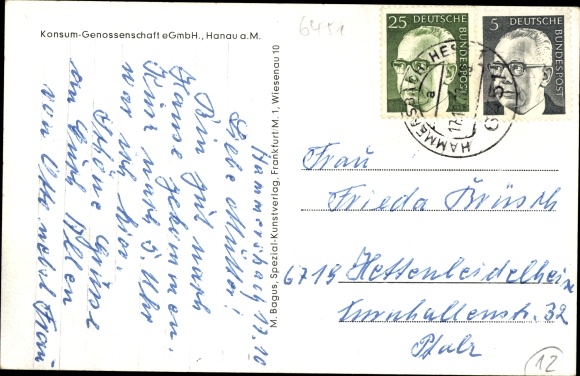 Konsum-Genossenschaft eGmbH., Hanau a.M.
6451
Hammersbach 17.10
Liebe Mutter!
Bin gut nach
Hause gekommen.
Kurz nach 5 Uhr
war ich hier.
Schöne Grüße
an Euch Allen
von Otto nebst Frau
M. Bagus, Spezial-Kunstverlag, Frankfurt M. 1, Wiesenau 10
25 DEUTSCHE BUNDESPOST
5 DEUTSCHE BUNDESPOST
HAMMERSBACH
6451
a
17.1
Frau
Frieda Brüsch
6719 Hettenleidelheim
Turnhallenstr. 32
Pfalz
12